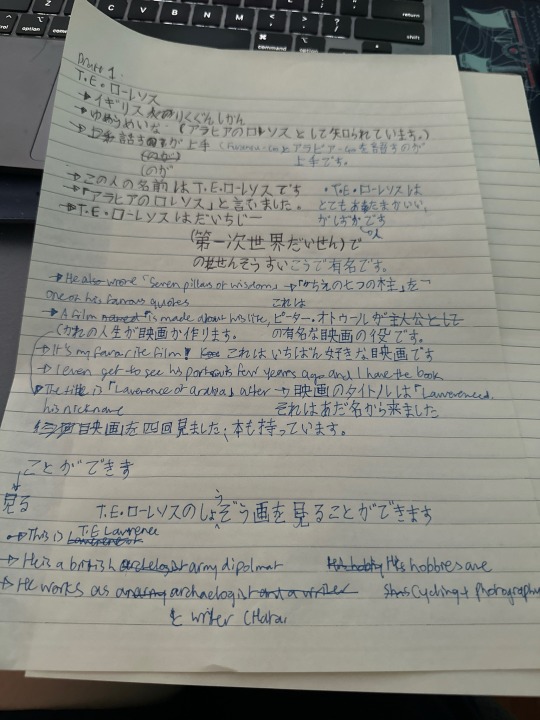 Draft 1
T.E.ローレソス
→イギリス人のりくぐんしかん
→ゆめうめいな (アラビアのロレソスとして知られています。)
話すのが上手
(のが)
(のが
上手です。
→この人の名前はT.E.ローレソスです
・T.E.ローレソスは
→「アラビアのロレソス」と言ていました。
とてもあたまかいい、
→T.E.ローレソスはだいちじー
がしずかです
人
(第一次世界だいせん)で
のせんそうすいこうで有名です。
→He also wrote 「Seven pillars of wisdom」 →「かちえの七つの木主」を
one of his famous quotes
これは
→A film is made about his life, ピーター・オトゥールが主人公として
(かれの人生が映画か作ります。
の有名な映画の役です。
→It's my favourite film! これはいちばん好きな映画です
→I even get to see his portraits few years ago and I have the book
→The title is 「Lawerence of arabia」 after →映画のタイトルは「Lawerenced
his nickname
それはあだ名から来ました
映画」を四回見ました、本も持っています。
ことができます
見る
う
T.E.ローレソスのしょぞう画を見ることができます
→This is T.E Lawrence
→He is a british army dipolmat
His hobbies are
→He works as archaelogist and a writer
Cycling + photography
& writer